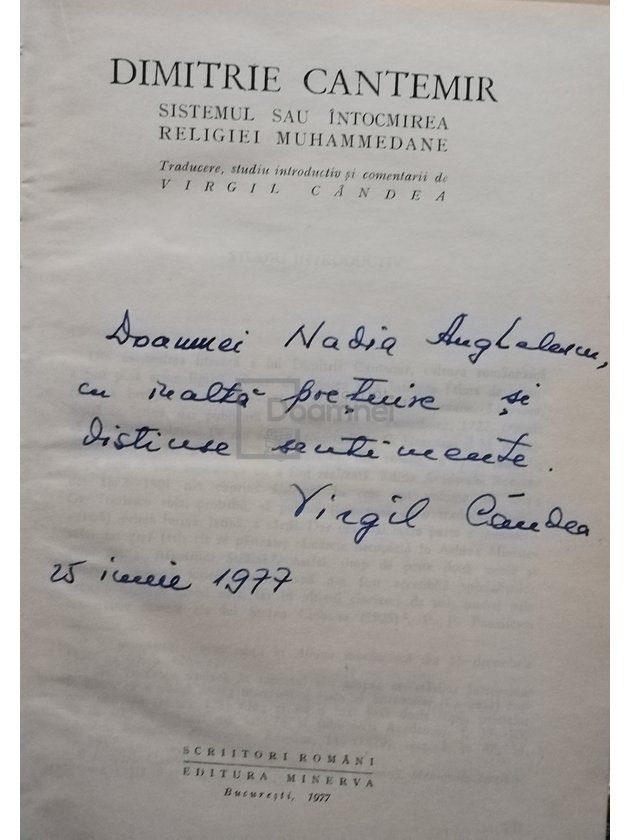 DIMITRIE CANTEMIR
SISTEMUL SAU ÎNTOCMIREA
RELIGIEI MUHAMMEDANE
Traducere, studiu introductiv și comentarii de
VIRGIL CÂNDEA
Doamnei Nadia Anghelescu,
cu înaltă prețuire și
distinse sentimente.
Virgil Cândea
25 iunie 1977
SCRIITORI ROMÂNI
EDITURA MINERVA
București, 1977